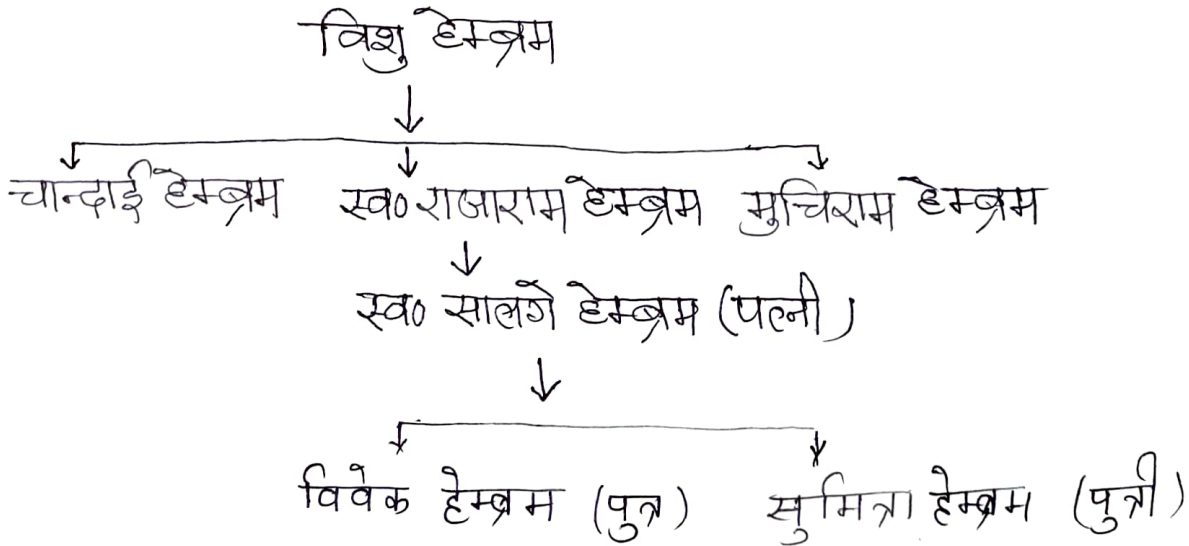 विशु हेम्ब्रम
चान्दाई हेम्ब्रम स्व० राजाराम हेम्ब्रम मुचिराम हेम्ब्रम
स्व० सालगे हेम्ब्रम (पत्नी)
विवेक हेम्ब्रम (पुत्र) सुमित्रा हेम्ब्रम (पुत्री)